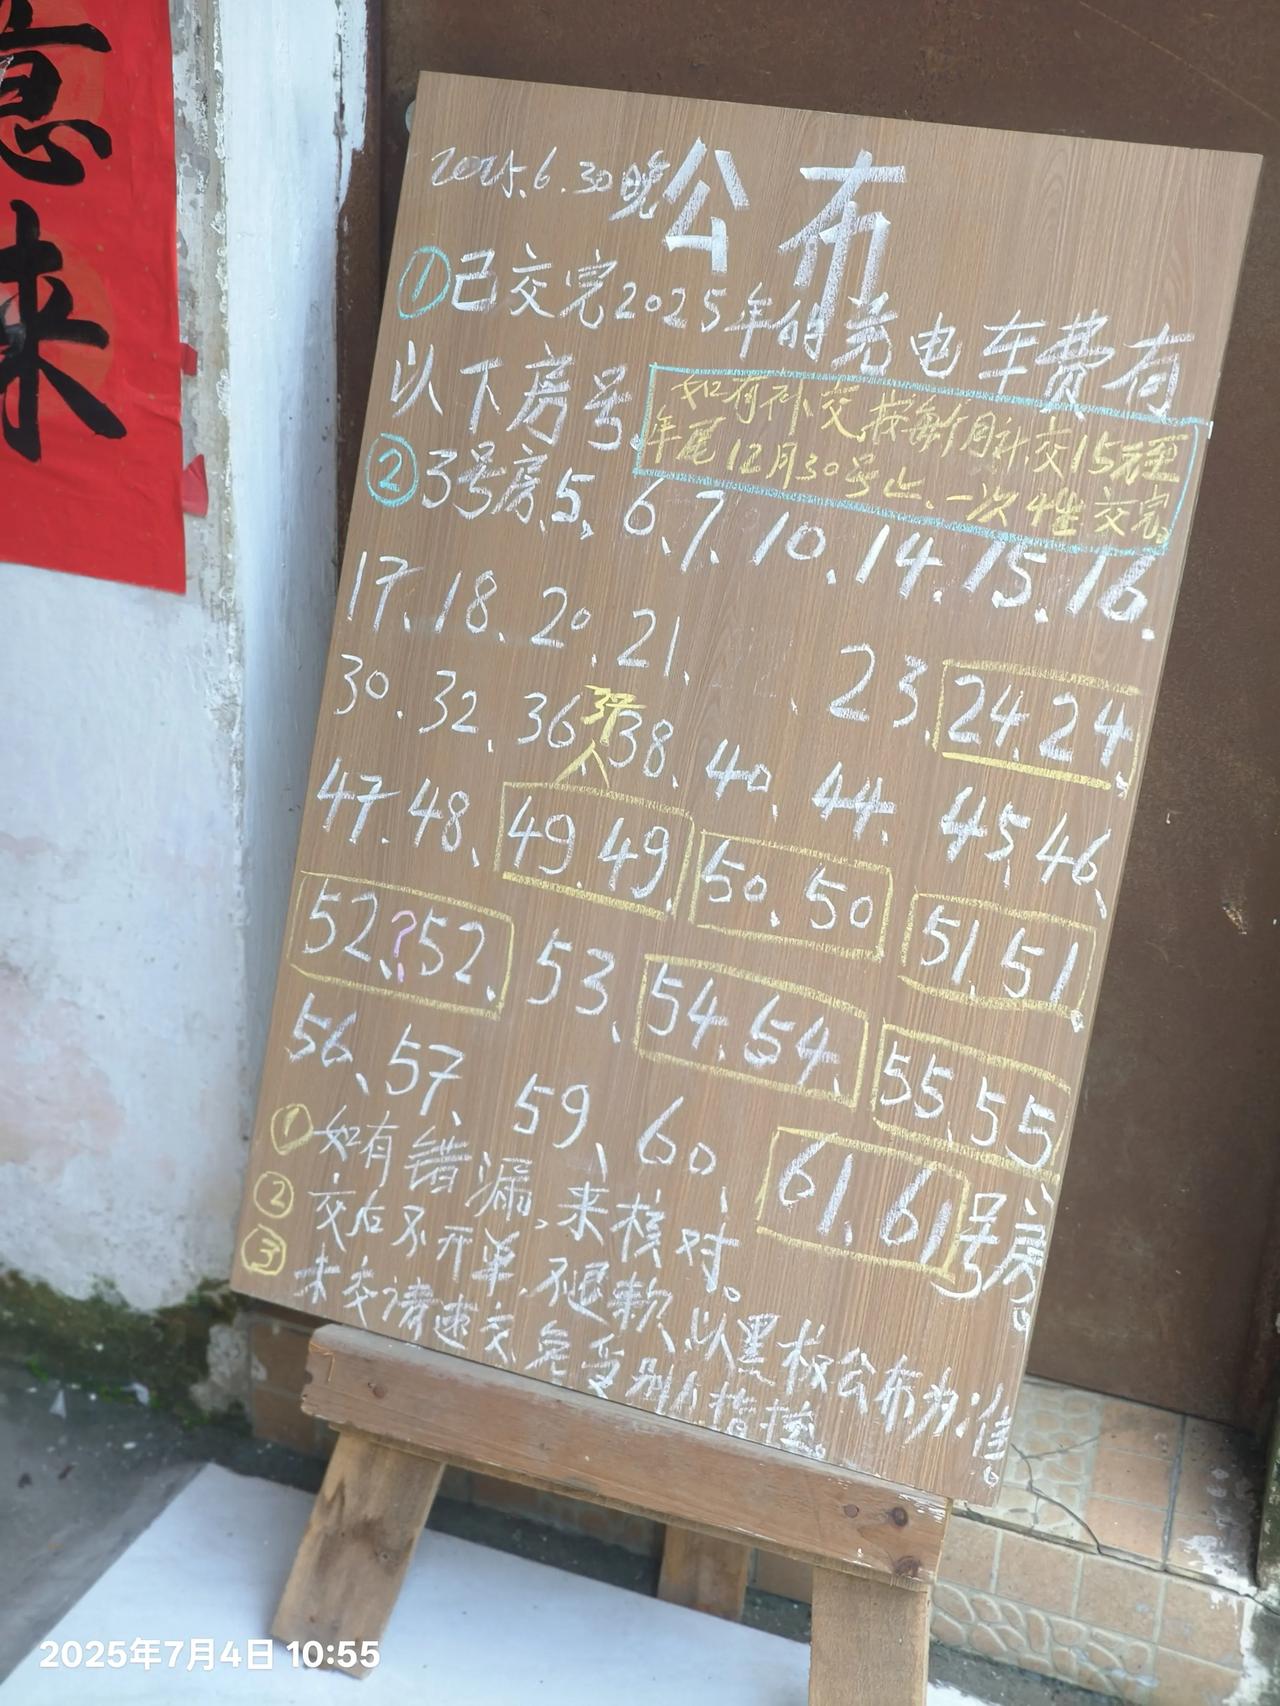 意
来
2025.6.30晚 公布
①已交完2025年的充电车费有
以下房号。
如有补交按每个月补交15元至
年尾12月30号止、一次性交完。
②3号房、5、6、7、10、14、15、16、
17、18、20、21、、23、24、24、
30、32、36、37、38、40、44、45、46、
47、48、49、49、50、50、51、51、
52、?52、53、54、54、55、55、
56、57、59、60、61、61号房。
①如有错漏,来核对。
②交后不开单,不退款,以黑板公布为准。
③未交请速交免受别人指控。
2025年7月4日 10:55